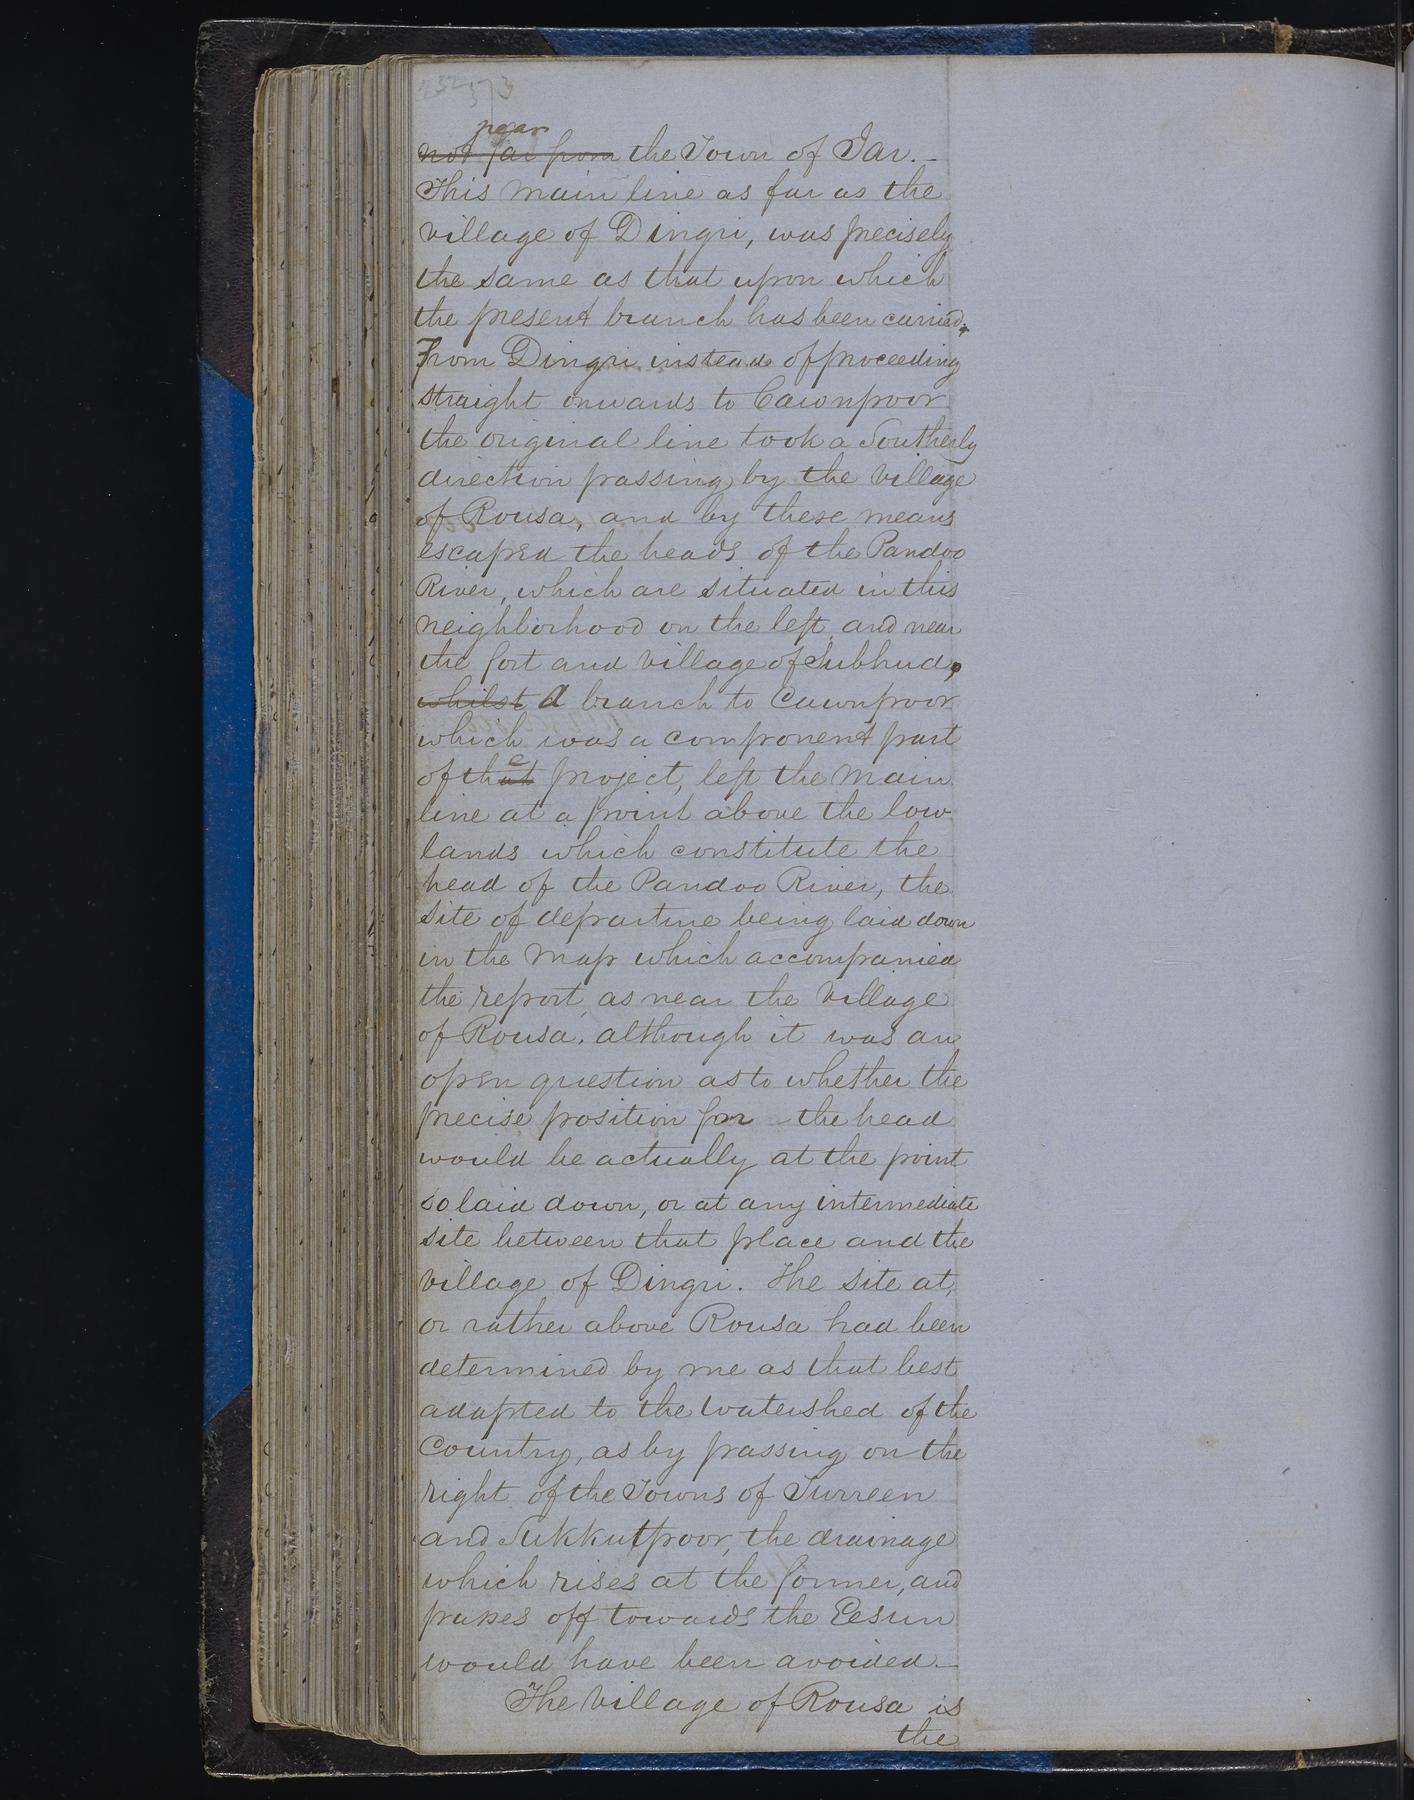 573
near
not far from the Town of Jar.-
This main line as far as the
village of Dingri, was precisely
the same as that upon which
the present branch has been carried.
From Dingri instead of proceeding
straight onwards to Cawnpoor
the original line took a Southerly
direction passing by the village
of Rousa, and by these means
escaped the heads of the Pandoo
River, which are situated in this
neighborhood on the left and near
the fort and village of Subhud,
whilst A branch to Cawnpoor
which was a component part
of that e project, left the main
line at a point above the low
lands which constitute the
head of the Pandoo River, the
site of departure being laid down
in the map which accompanied
the report, as near the Village
of Rousa, although it was an
open question as to whether the
precise position for the head
would be actually at the point
so laid down, or at any intermediate
site between that place and the
village of Dingri. The site at,
or rather above Rousa had been
determined by me as that best
adapted to the watershed of the
Country, as by passing on the
right of the Towns of Turreen
and Sukkutpoor, the drainage
which rises at the former, and
passes off towards the Eesun
would have been avoided.-
The Village of Rousa is
the